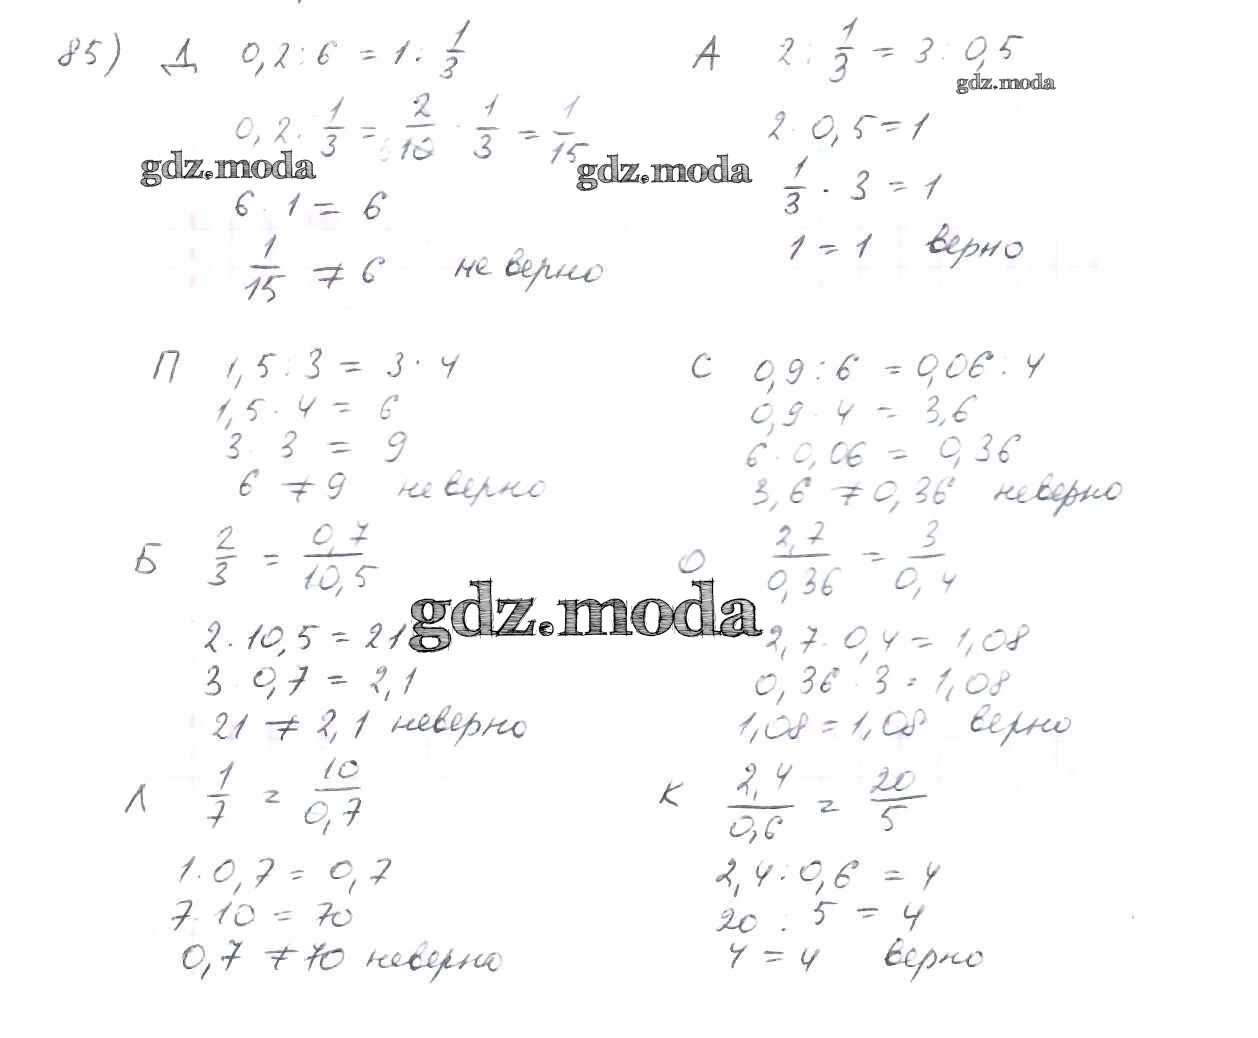 85) Д 0,2 : 6 = 1 : 1/3
0,2 · 1/3 = 2/10 · 1/3 = 1/15
6 · 1 = 6
1/15 ≠ 6 не верно
А 2 : 1/3 = 3 : 0,5
2 · 0,5 = 1
1/3 · 3 = 1
1 = 1 верно
gdz.moda
gdz.moda
gdz.moda
П 1,5 : 3 = 3 · 4
1,5 · 4 = 6
3 · 3 = 9
6 ≠ 9 неверно
С 0,9 : 6 = 0,06 : 4
0,9 · 4 = 3,6
6 · 0,06 = 0,36
3,6 ≠ 0,36 неверно
Б 2/3 = 0,7/10,5
2 · 10,5 = 21
3 · 0,7 = 2,1
21 ≠ 2,1 неверно
О 2,7/0,36 = 3/0,4
2,7 · 0,4 = 1,08
0,36 · 3 = 1,08
1,08 = 1,08 верно
gdz.moda
Л 1/7 = 10/0,7
1 · 0,7 = 0,7
7 · 10 = 70
0,7 ≠ 70 неверно
К 2,4/0,6 = 20/5
2,4 : 0,6 = 4
20 : 5 = 4
4 = 4 верно